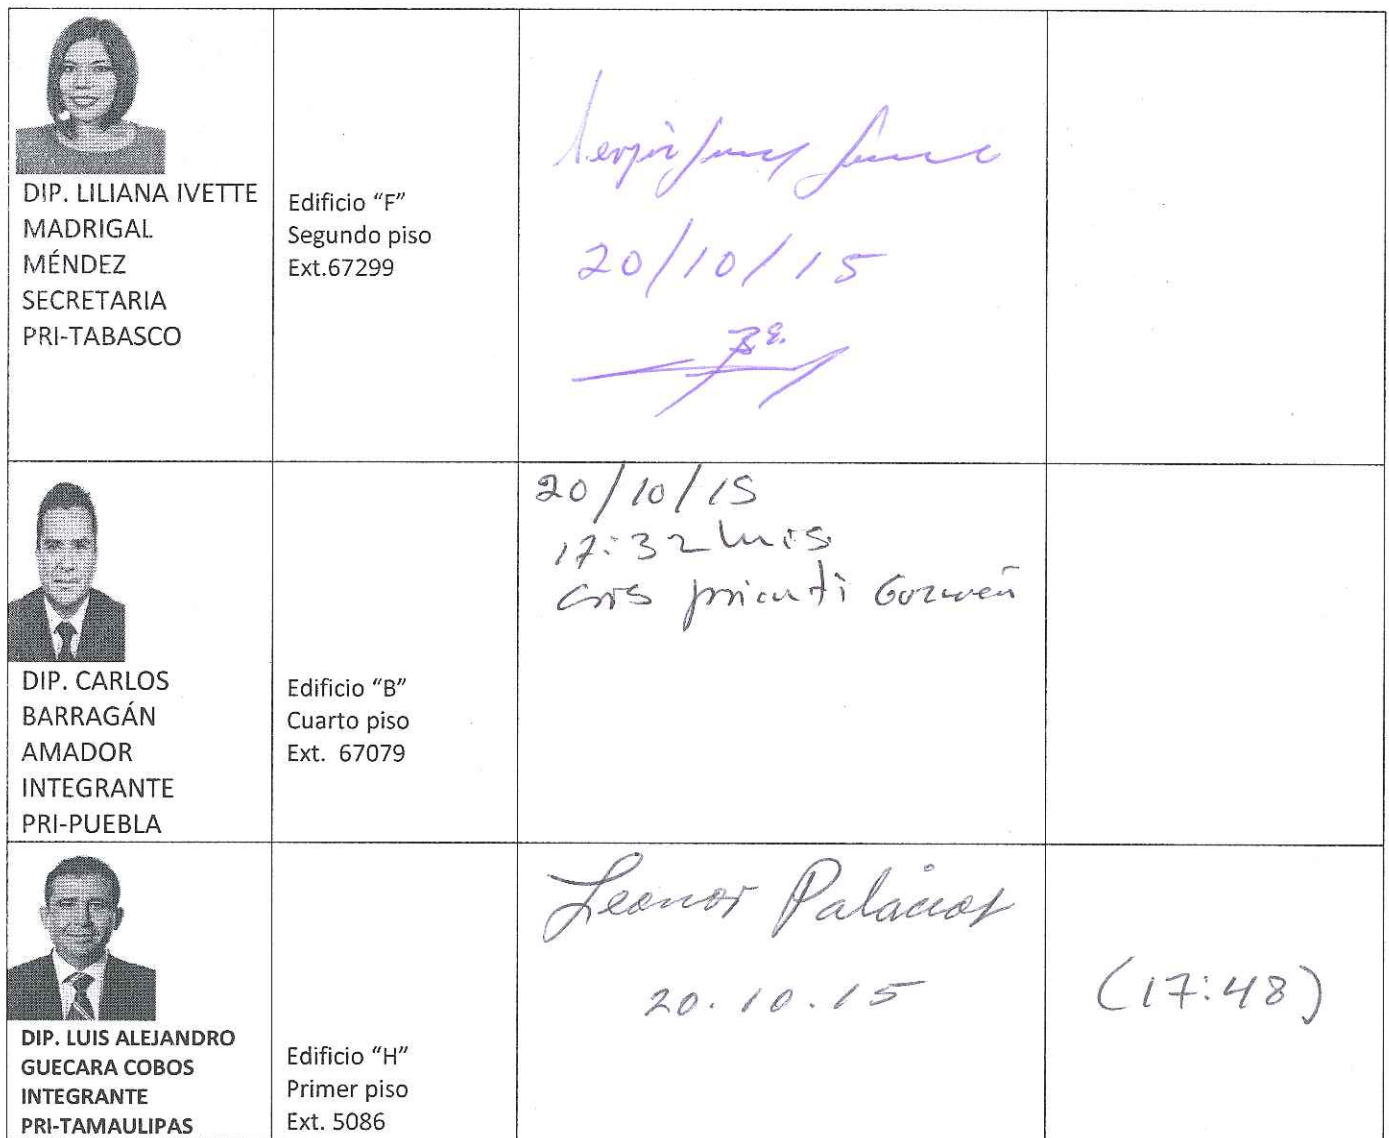 DIP. LILIANA IVETTE
MADRIGAL
MÉNDEZ
SECRETARIA
PRI-TABASCO
Edificio "F"
Segundo piso
Ext.67299
20/10/15
DIP. CARLOS
BARRAGÁN
AMADOR
INTEGRANTE
PRI-PUEBLA
Edificio "B"
Cuarto piso
Ext. 67079
20/10/15
17:32 Luis
DIP. LUIS ALEJANDRO
GUECARA COBOS
INTEGRANTE
PRI-TAMAULIPAS
Edificio "H"
Primer piso
Ext. 5086
Leonor Palacios
20.10.15
(17:48)